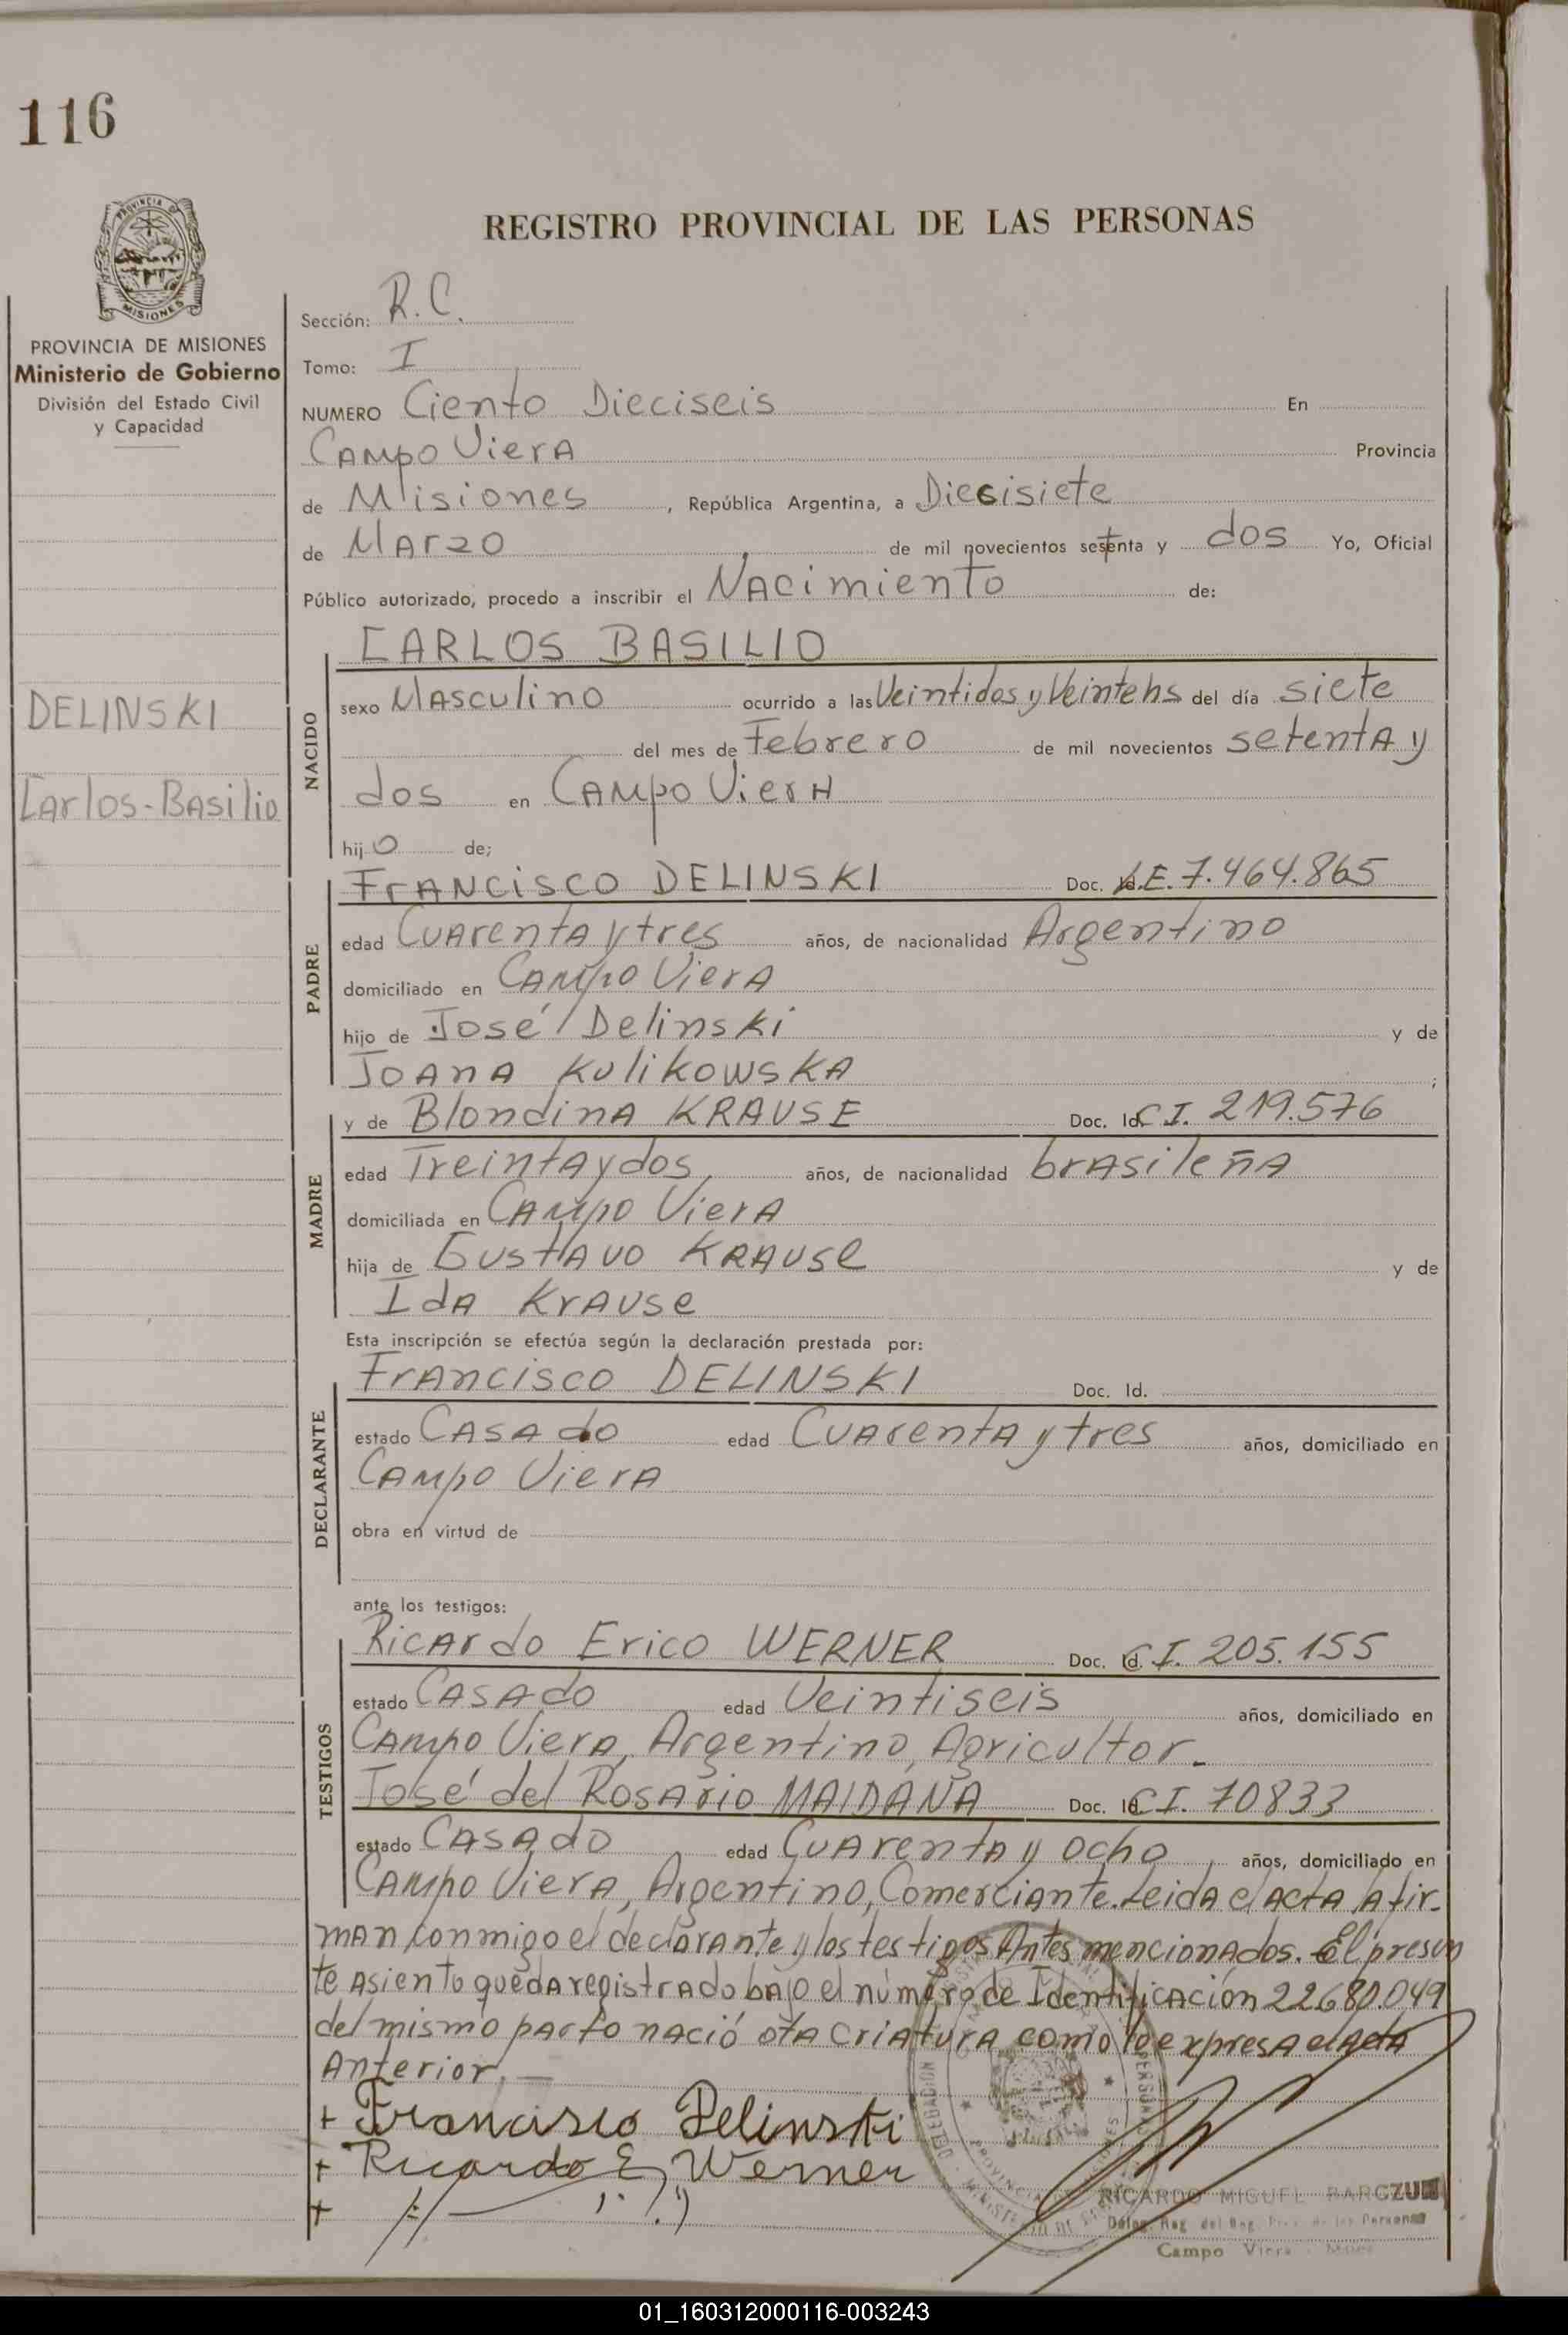 116
PROVINCIA DE MISIONES
Ministerio de Gobierno
División del Estado Civil
y Capacidad
DELINSKI
Carlos-Basilio
REGISTRO PROVINCIAL DE LAS PERSONAS
Sección: R.C.
Tomo: I
NUMERO Ciento Dieciseis En
Campo Viera Provincia
de Misiones, República Argentina, a Diecisiete
de Marzo de mil novecientos setenta y dos Yo, Oficial
Público autorizado, procedo a inscribir el Nacimiento de:
NACIDO
CARLOS BASILIO
sexo Masculino ocurrido a las Veintidos y Veinte hs del día siete
del mes de Febrero de mil novecientos setenta y
dos en Campo Viera
hijo de;
PADRE
Francisco DELINSKI Doc. L.E. 7.464.865
edad Cuarenta y tres años, de nacionalidad Argentino
domiciliado en Campo Viera
hijo de José Delinski y de
Joana Kulikowska ;
MADRE
y de Blondina KRAUSE Doc. Id. C.I. 219.576
edad Treinta y dos años, de nacionalidad brasileña
domiciliada en Campo Viera
hija de Gustavo Krause y de
Ida Krause
Esta inscripción se efectúa según la declaración prestada por:
DECLARANTE
Francisco DELINSKI Doc. Id.
estado Casado edad Cuarenta y tres años, domiciliado en
Campo Viera
obra en virtud de
ante los testigos:
TESTIGOS
Ricardo Erico WERNER Doc. Id. C.I. 205.155
estado Casado edad Veintiseis años, domiciliado en
Campo Viera, Argentino, Agricultor.
José del Rosario MAIDANA Doc. Id. C.I. 70833
estado Casado edad Cuarenta y ocho, años, domiciliado en
Campo Viera, Argentino, Comerciante. Leida el acta la fir-
man conmigo el declarante y los testigos Antes mencionados. El presen
te asiento queda registrado bajo el número de Identificación 22.680.049
del mismo parto nació otra criatura como lo expresa el acta
Anterior.
+ Francisco Delinski
+ Ricardo E. Werner
+
RICARDO MIGUEL BARCZUK
Campo Viera
01_160312000116-003243